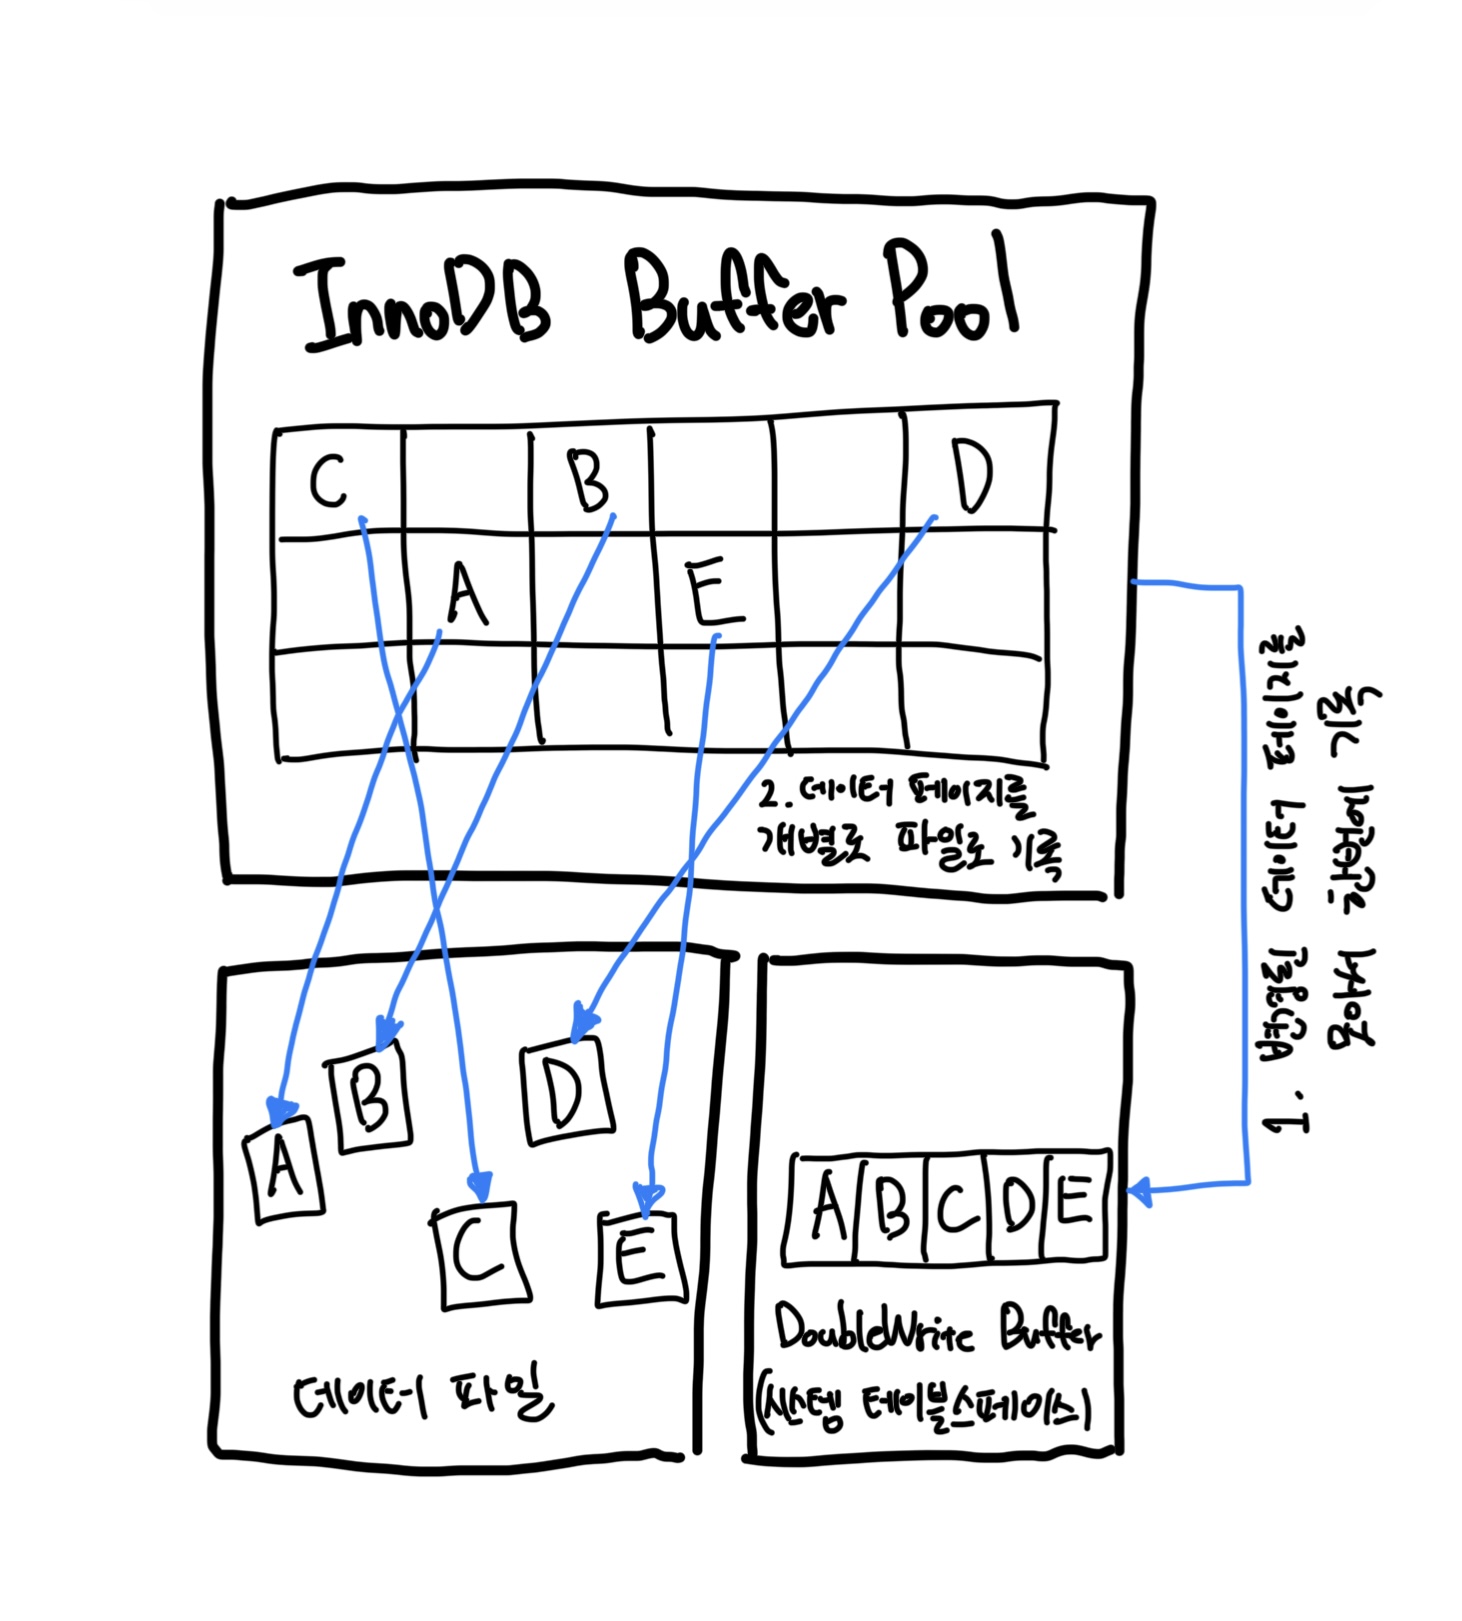 InnoDB Buffer Pool
C B D
A E
2. 데이터 페이지를
개별로 파일로 기록
1. 변경된 데이터 페이지를
모아서 한번에 기록
A B C D E
데이터 파일
A B C D E
DoubleWrite Buffer
(시스템 테이블스페이스)